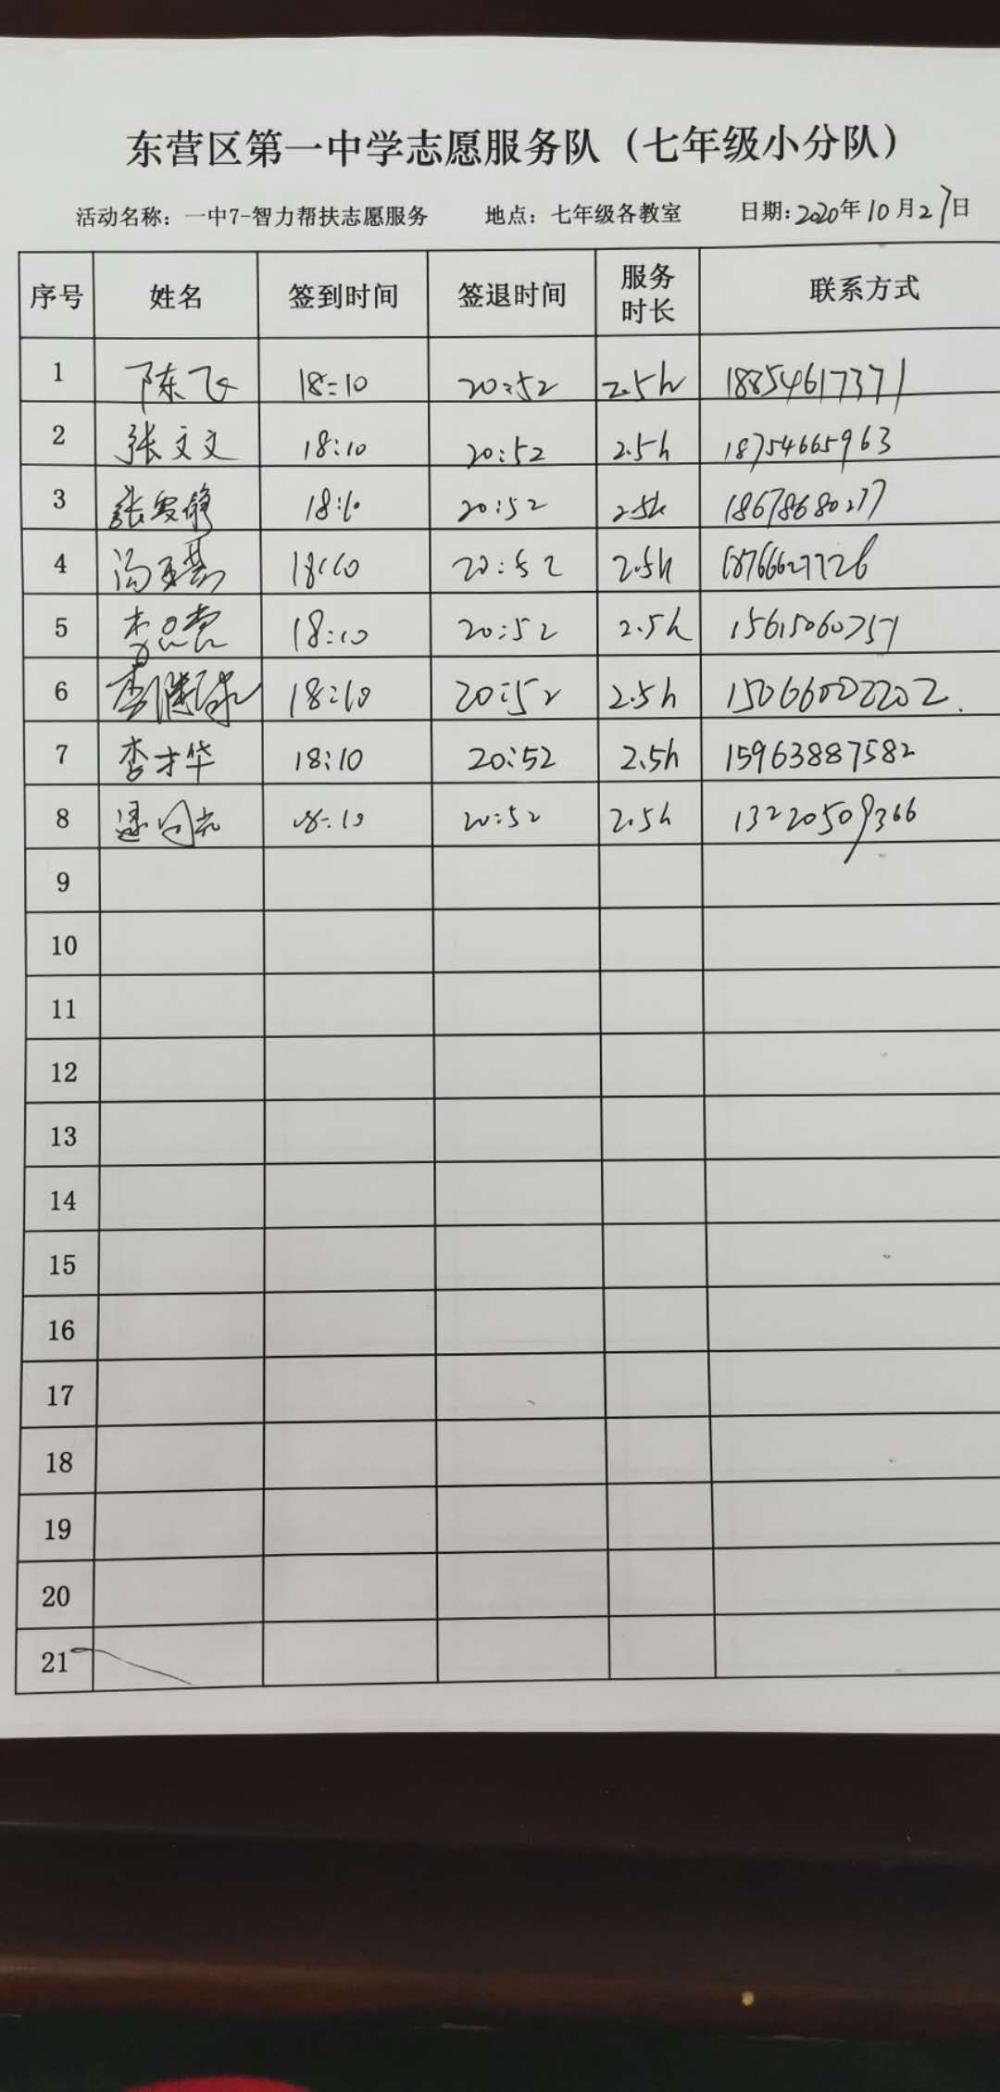 东营区第一中学志愿服务队（七年级小分队）
活动名称：一中7-智力帮扶志愿服务 地点：七年级各教室 日期：2020年10月27日
序号 姓名 签到时间 签退时间 服务时长 联系方式
1 陈飞 18:10 20:52 2.5h 18854617371
2 张文文 18:10 20:52 2.5h 18754665963
3 18:10 20:52 2.5h 18678680277
4 18:10 20:52 2.5h
5 18:10 20:52 2.5h
6 18:10 20:52 2.5h 15066002202.
7 李才华 18:10 20:52 2.5h 15963887582
8 18:10 20:52 2.5h 13220509366
9
10
11
12
13
14
15
16
17
18
19
20
21